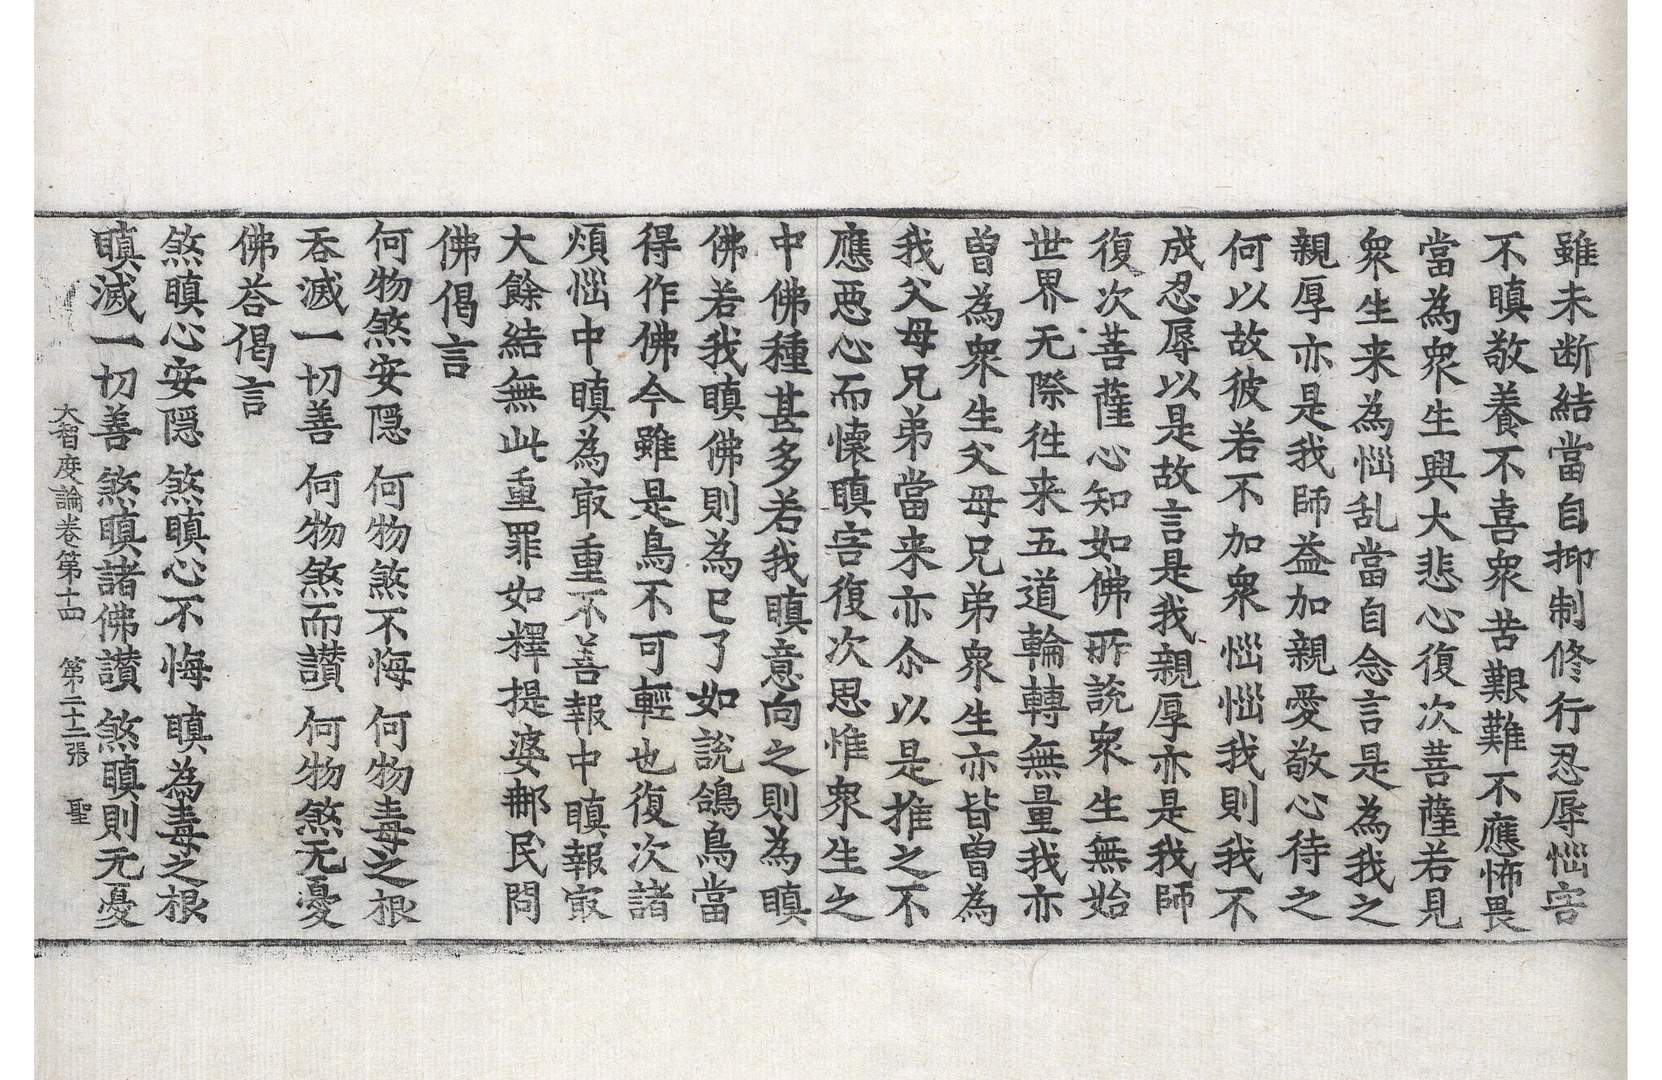 雖未断結當自抑制修行忍辱惱害
不瞋敬養不喜衆苦艱難不應怖畏
當為衆生興大悲心復次菩薩若見
衆生来為惱乱當自念言是為我之
親厚亦是我師益加親愛敬心待之
何以故彼若不加衆惱惱我則我不
成忍辱以是故言是我親厚亦是我師
復次菩薩心知如佛所說衆生無始
世界无際徃来五道輪轉無量我亦
曽為衆生父母兄弟衆生亦皆曽為
我父母兄弟當来亦尒以是推之不
應惡心而懷瞋害復次思惟衆生之
中佛種甚多若我瞋意向之則為瞋
佛若我瞋佛則為已了如說鴿鳥當
得作佛今雖是鳥不可輕也復次諸
煩惱中瞋為㝡重不善報中瞋報㝡
大餘結無此重罪如釋提婆那民問
佛偈言
何物煞安隠　何物煞不悔　何物毒之根
吞滅一切善　何物煞而讃　何物煞无憂
佛荅偈言
煞瞋心安隠　煞瞋心不悔　瞋為毒之根
瞋滅一切善　煞瞋諸佛讃　煞瞋則无憂
大智度論卷第十四　第二十二張　聖